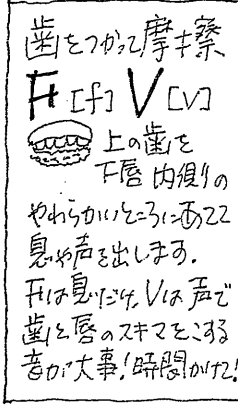 歯をつかって摩擦
F [f] V [v]
上の歯を
下唇 内側りの
やわらかいところにあてて
息や声を出します。
Fは息だけ、Vは声で
歯と唇のスキマをこする
音が大事!時間かけて!